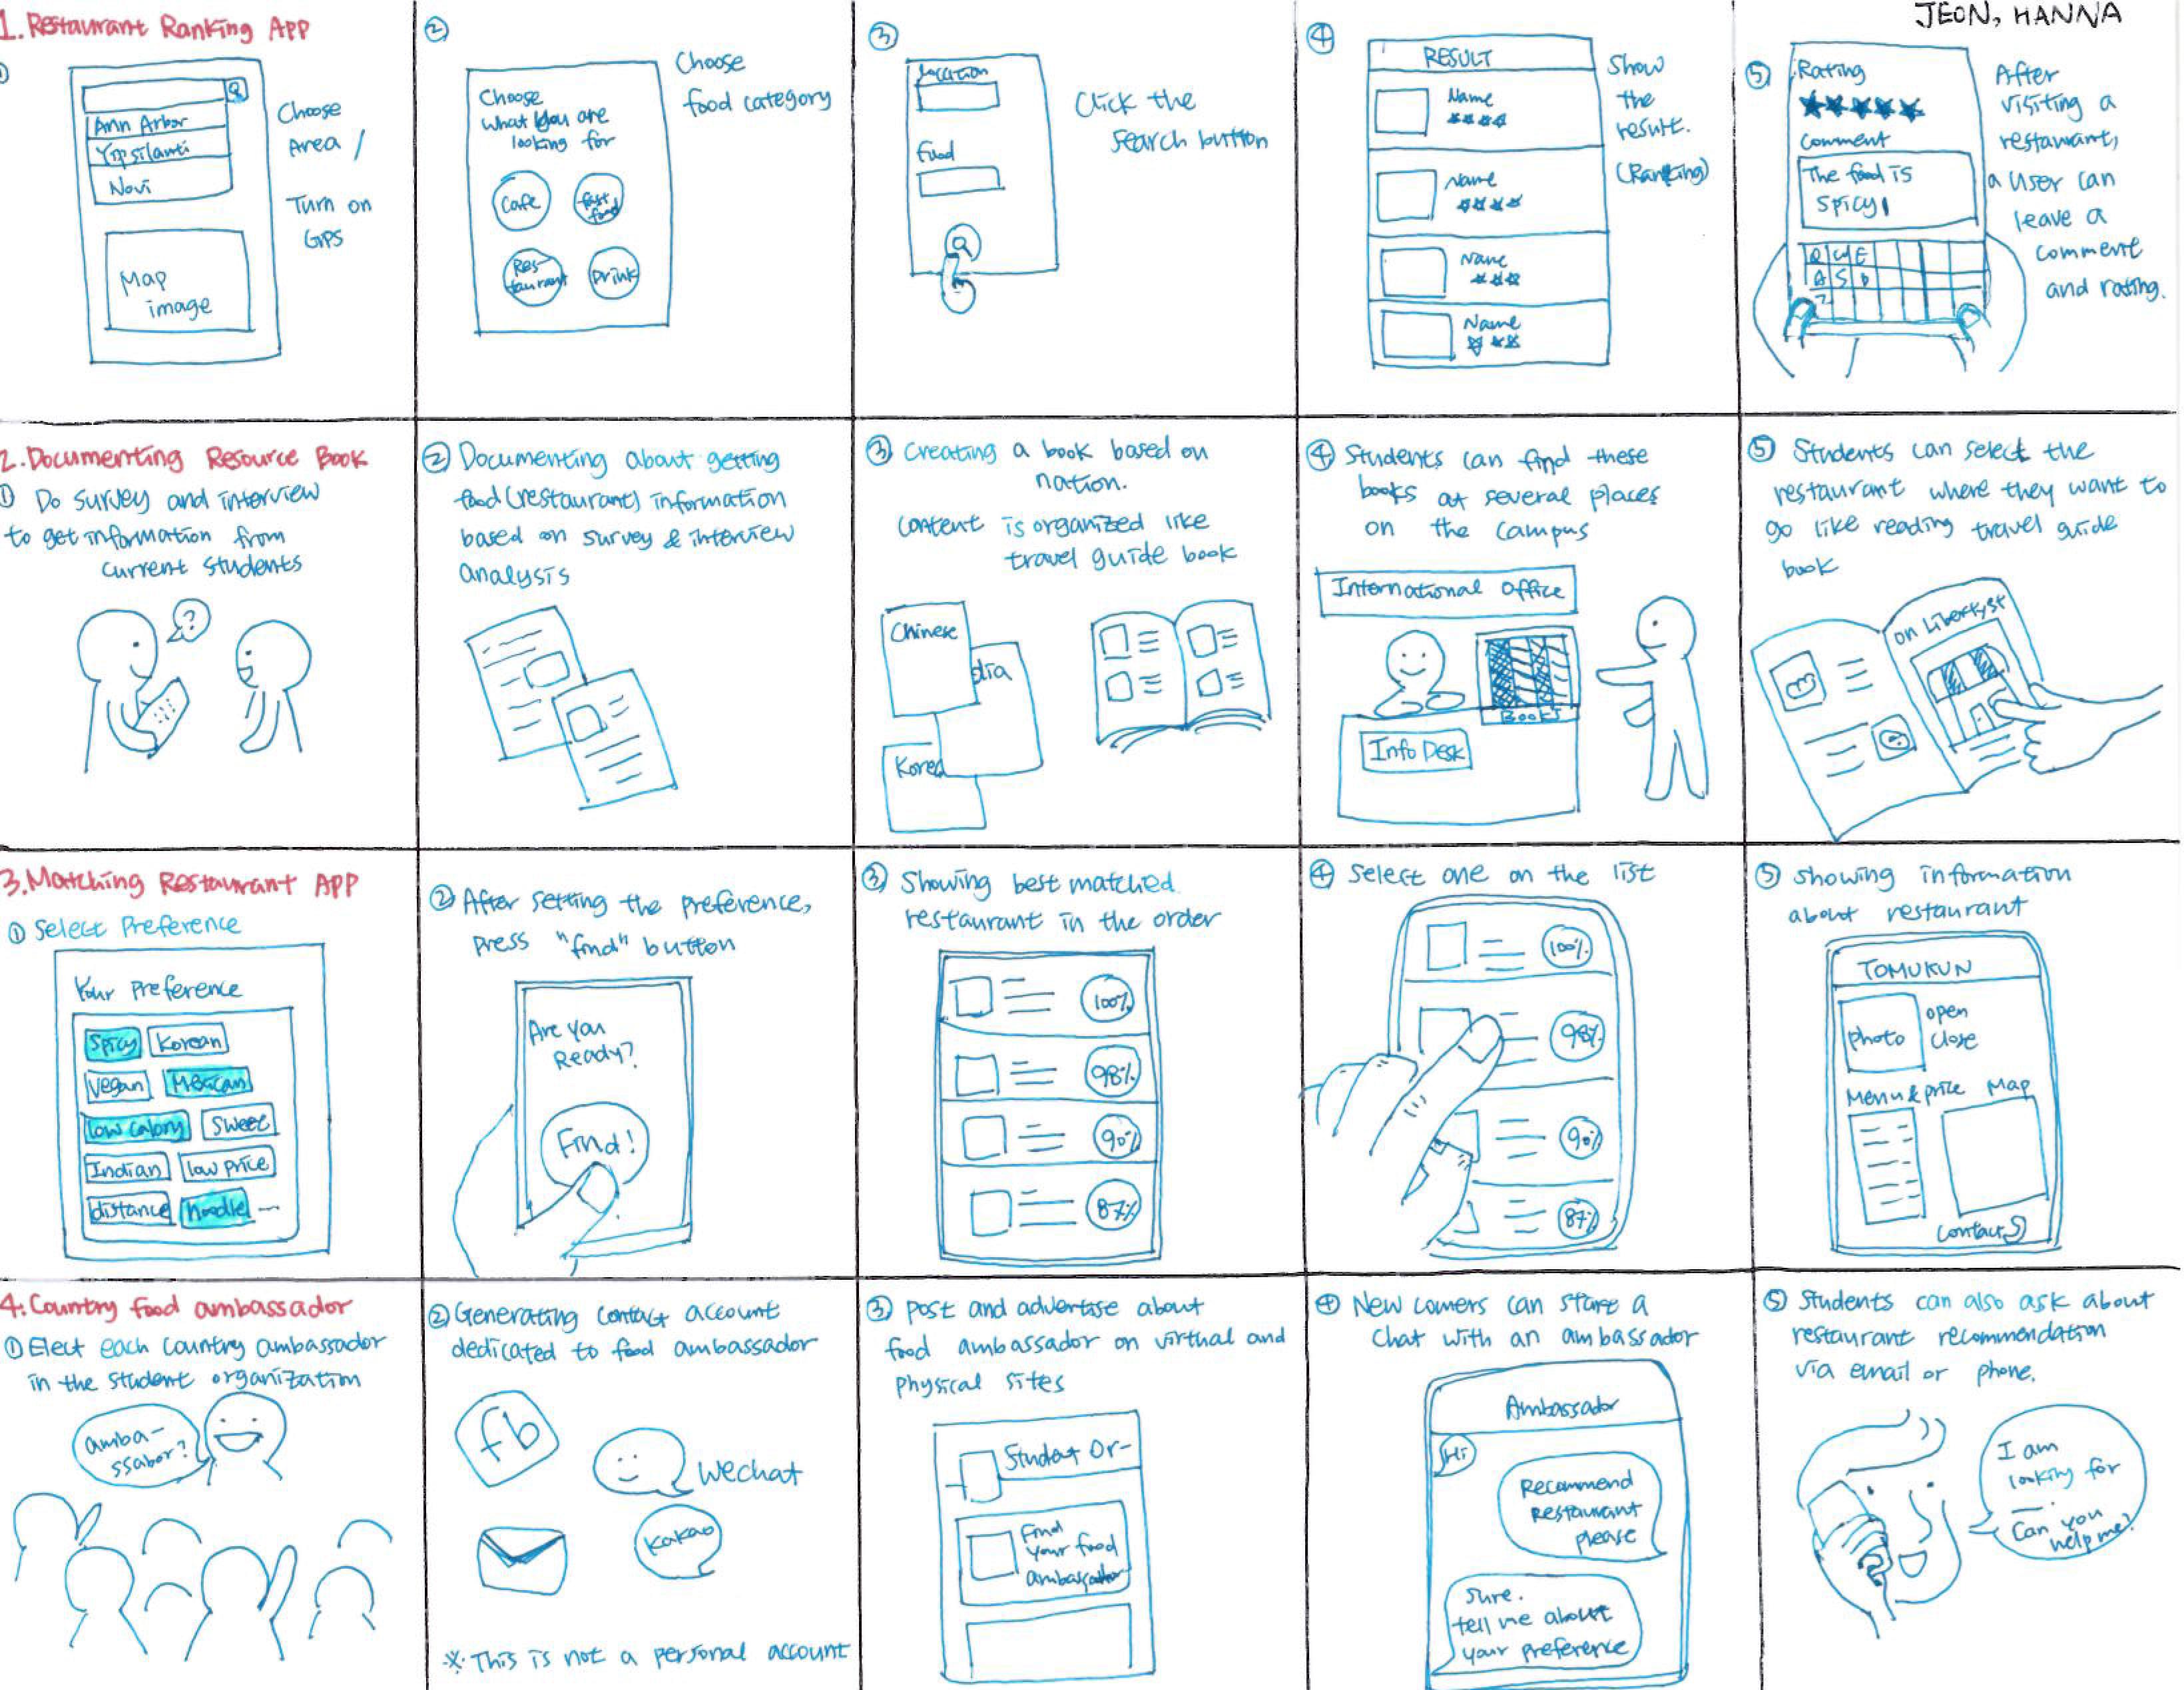 JEON, HANNA
1. Restaurant Ranking App
①
Ann Arbor
Ypsilanti
Novi
Map
image
Choose
Area /
Turn on
GPS
②
Choose
what you are
looking for
Cafe
fast
food
Res-
taurant
Drink
Choose
food category
③
location
Food
Click the
search button
④
RESULT
Name
Name
Name
Name
Show
the
result.
(Ranking)
⑤
Rating
comment
The food is
spicy
Q W E
A S D
Z
After
visiting a
restaurant,
a user can
leave a
comment
and rating.
2. Documenting Resource Book
① Do survey and interview
to get information from
current students
?
② Documenting about getting
food (restaurant) information
based on survey & interview
analysis
③ creating a book based on
nation.
content is organized like
travel guide book
Chinese
dia
Korea
④ Students can find these
books at several places
on the campus
International Office
Books
Info Desk
⑤ Students can select the
restaurant where they want to
go like reading travel guide
book
on Liberty st
3. Matching Restaurant APP
① Select Preference
Your preference
Spicy Korean
Vegan Mexican
low calory sweet
Indian low price
distance noodle ...
② After setting the preference,
press "find" button
Are you
Ready?
Find!
③ Showing best matched
restaurant in the order
100%
98%
90%
87%
④ Select one on the list
100%
98%
90%
87%
⑤ showing information
about restaurant
TOMUKUN
photo
open
close
Menu & price Map
contact
4. Country food ambassador
① Elect each country ambassador
in the student organization
amba-
ssabor?
② Generating contact account
dedicated to food ambassador
fb
Wechat
Kakao
※ This is not a personal account
③ post and advertise about
food ambassador on virthal and
physical sites
Student Or-
Find
your food
ambassador
④ New comers can start a
chat with an ambassador
Ambassador
Hi
Recommend
restaurant
please
Sure.
tell me about
your preference
⑤ Students can also ask about
restaurant recommendation
via email or phone.
I am
looking for
__.
Can you
help me?